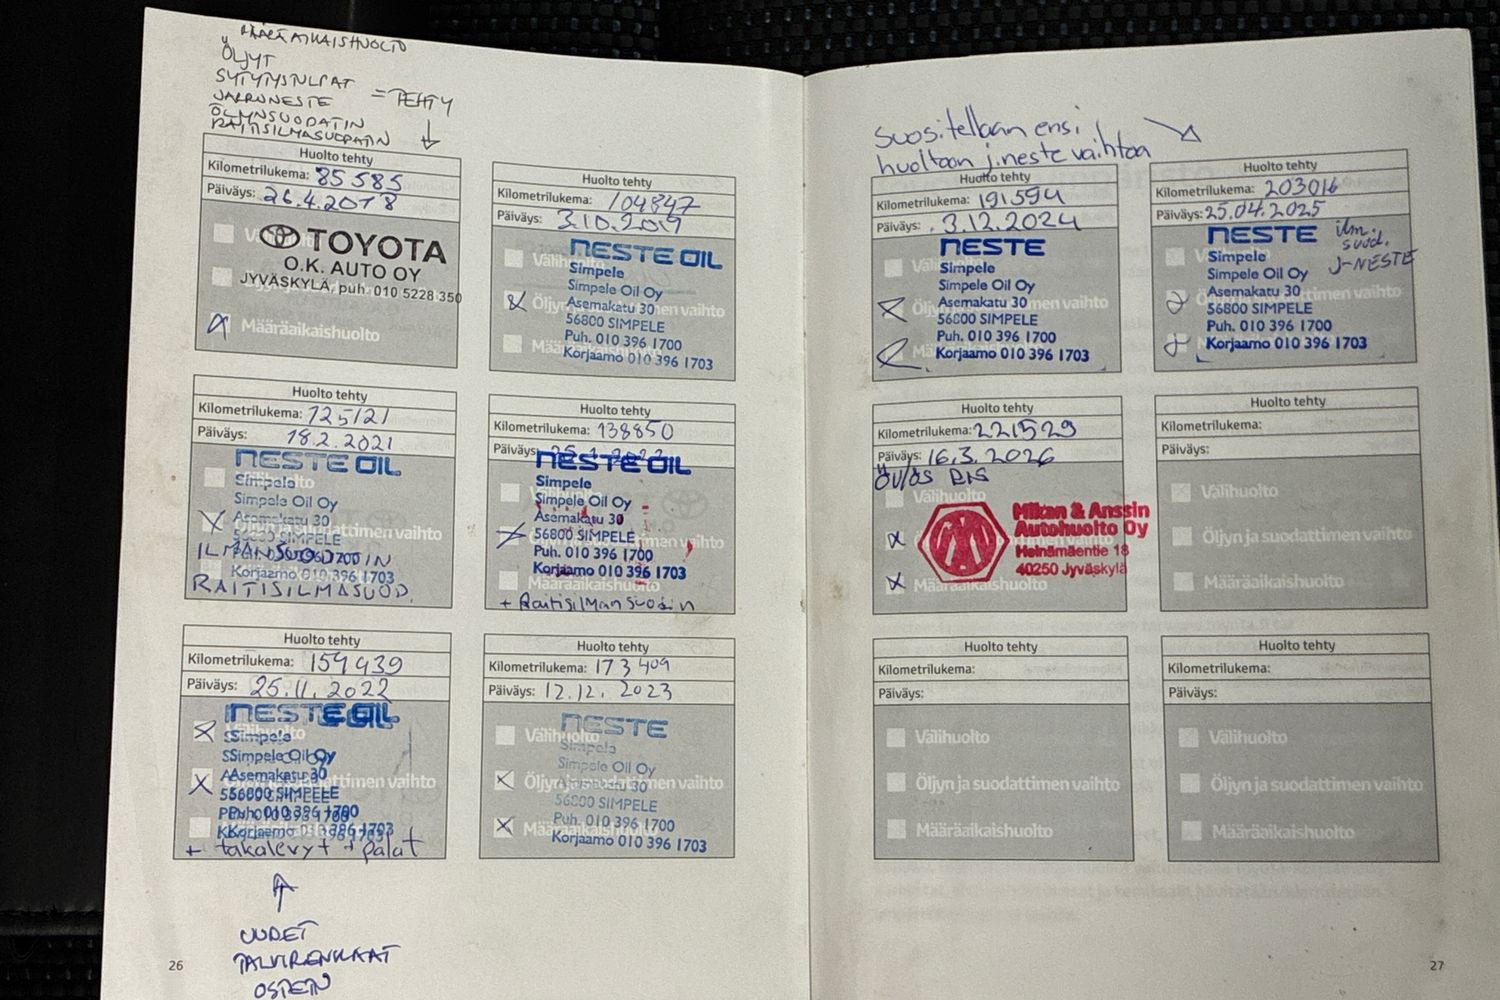 MÄÄRÄAIKAISHUOLTO
ÖLJYT
SYTYTYSTULPAT
JARRUNESTE
ÖLJYNSUODATIN
RAITISILMASUODATIN
= TEHTY
Huolto tehty
Kilometrilukema: 85 585
Päiväys: 26.4.2018
TOYOTA
O.K. AUTO OY
JYVÄSKYLÄ, puh. 010 5228 350
Määräaikaishuolto
Huolto tehty
Kilometrilukema: 104847
Päiväys: 3.10.2019
NESTE OIL
Välihuolto
Simpele
Simpele Oil Oy
Asemakatu 30
56800 SIMPELE
Puh. 010 396 1700
Korjaamo 010 396 1703
Huolto tehty
Kilometrilukema: 125121
Päiväys: 18.2.2021
NESTE OIL
Simpele
Simpele Oil Oy
Asemakatu 30
Öljyn ja suodattimen vaihto
56800 SIMPELE
ILMANSUODATIN
Korjaamo 010 396 1703
RAITISILMASUOD.
Huolto tehty
Kilometrilukema: 138850
Päiväys:
NESTE OIL
Simpele
Simpele Oil Oy
Asemakatu 30
56800 SIMPELE
Puh. 010 396 1700
Korjaamo 010 396 1703
Määräaikaishuolto
+ Raitisilman suodin
Huolto tehty
Kilometrilukema: 159439
Päiväys: 25.11.2022
NESTE OIL
Simpele
Simpele Oil Oy
Asemakatu 30
56800 SIMPELE
Puh. 010 396 1700
Korjaamo 010 396 1703
+ takalevyt + palat
UUDET
TALVIRENKAAT
OSTETTU
Huolto tehty
Kilometrilukema: 173409
Päiväys: 12.12.2023
NESTE
Välihuolto
Simpele
Simpele Oil Oy
Öljyn ja suodattimen vaihto
Asemakatu 30
56800 SIMPELE
Puh. 010 396 1700
Korjaamo 010 396 1703
26
Suositellaan ensi
huoltoon j.neste vaihtoa
Huolto tehty
Kilometrilukema: 191594
Päiväys: 3.12.2024
NESTE
Simpele
Simpele Oil Oy
Asemakatu 30
56800 SIMPELE
Puh. 010 396 1700
Korjaamo 010 396 1703
Huolto tehty
Kilometrilukema: 203016
Päiväys: 25.04.2025
NESTE
ilm.
suod.
J-NESTE
Simpele
Simpele Oil Oy
Asemakatu 30
56800 SIMPELE
Puh. 010 396 1700
Korjaamo 010 396 1703
Huolto tehty
Kilometrilukema: 221529
Päiväys: 16.3.2026
Välihuolto
Mikan & Anssin
Autohuolto Oy
Heinämäentie 18
40250 Jyväskylä
Määräaikaishuolto
Huolto tehty
Kilometrilukema:
Päiväys:
Välihuolto
Öljyn ja suodattimen vaihto
Määräaikaishuolto
Huolto tehty
Kilometrilukema:
Päiväys:
Välihuolto
Öljyn ja suodattimen vaihto
Määräaikaishuolto
Huolto tehty
Kilometrilukema:
Päiväys:
Välihuolto
Öljyn ja suodattimen vaihto
Määräaikaishuolto
27